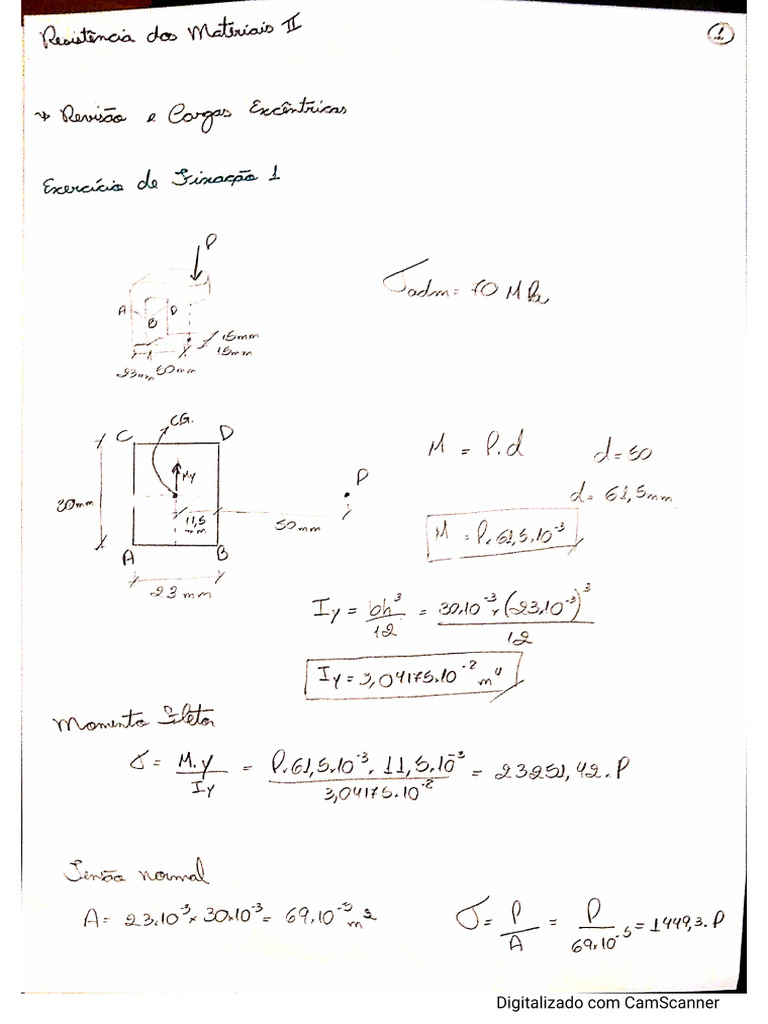 Resistência dos Materiais II
1
→ Revisão e Cargas Excêntricas
Exercício de Fixação 1
P
σadm = 70 MPa
A
D
B
15mm
15mm
23mm 50mm
C C.G. D
My
30mm
11,5 mm
50mm
P
A B
23 mm
M = P.d d=50
d= 61,5mm
M = P.61,5.10⁻³
Iy = bh³/12 = 30.10⁻³ x (23.10⁻³)³/12
Iy = 3,04175.10⁻² m⁴
Momento Fletor
σ = M.y/Iy = P.61,5.10⁻³ . 11,5.10⁻³/3,04175.10⁻² = 23251,42.P
Tensão normal
A = 23.10⁻³ x 30.10⁻³ = 69.10⁻⁵ m² σ = P/A = P/69.10⁻⁵ = 1449,3.P
Digitalizado com CamScanner